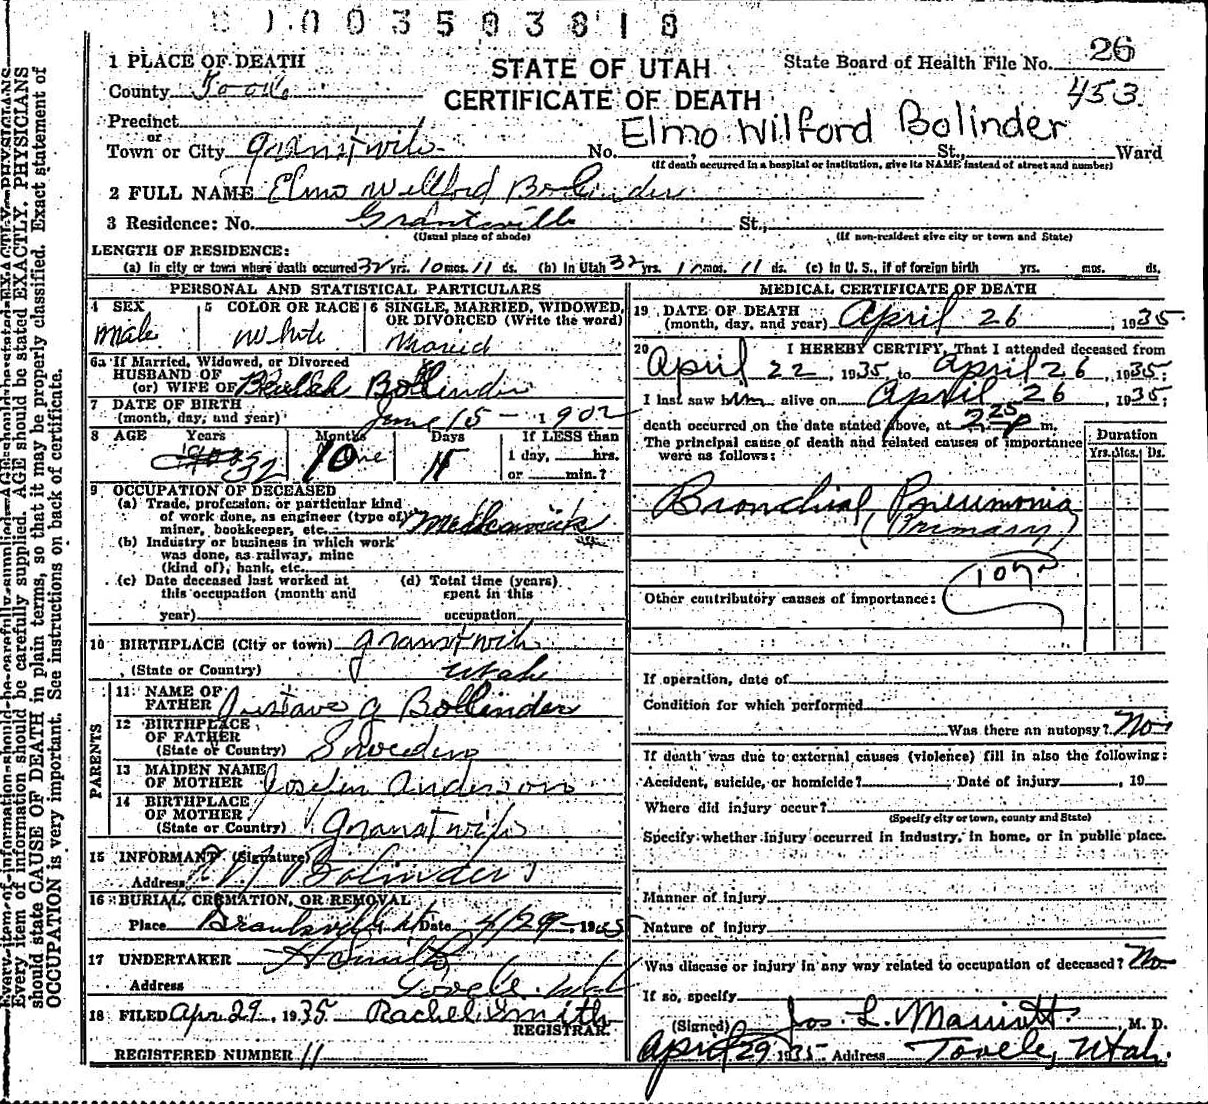 0 0 3 5 0 3 8 1 8
1 PLACE OF DEATH
STATE OF UTAH
CERTIFICATE OF DEATH
State Board of Health File No. 26
453
County Tooele
Precinct
or
Town or City
Elmo Wilford Bolinder
No. St., Ward
(If death occurred in a hospital or institution, give its NAME instead of street and number)
2 FULL NAME Elmo Willford Bolinder
3 Residence: No. Grantsville St.,
(Usual place of abode) (If non-resident give city or town and State)
LENGTH OF RESIDENCE:
(a) In city or town where death occurred 32 yrs. 10 mos. 11 ds. (b) In Utah 32 yrs. mos. 11 ds. (c) In U. S., if of foreign birth yrs. mos. ds.
PERSONAL AND STATISTICAL PARTICULARS
4 SEX
Male
5 COLOR OR RACE
White
6 SINGLE, MARRIED, WIDOWED,
OR DIVORCED (Write the word)
6a If Married, Widowed, or Divorced
HUSBAND OF
(or) WIFE OF Beulah Bollinder
7 DATE OF BIRTH
(month, day, and year) June 15 - 1902
8 AGE Years Months Days If LESS than
1 day, hrs.
or min.?
32 10 11
9 OCCUPATION OF DECEASED
(a) Trade, profession, or particular kind
of work done, as engineer (type of)
miner, bookkeeper, etc. Mechanick
(b) Industry or business in which work
was done, as railway, mine
(kind of), bank, etc.
(c) Date deceased last worked at
this occupation (month and
year)
(d) Total time (years)
spent in this
occupation
10 BIRTHPLACE (City or town)
(State or Country) Utah
PARENTS
11 NAME OF
FATHER Gustave G Bollinder
12 BIRTHPLACE
OF FATHER
(State or Country) Sweeden
13 MAIDEN NAME
OF MOTHER Anderson
14 BIRTHPLACE
OF MOTHER
(State or Country)
15 INFORMANT (Signature)
Bolinder
Address
16 BURIAL, CREMATION, OR REMOVAL
Place Grantsville Date 4/29 - 1935
17 UNDERTAKER
Address Tooele, Utah
18 FILED Apr 29, 1935 Rachel Smith
REGISTRAR
REGISTERED NUMBER 11
MEDICAL CERTIFICATE OF DEATH
19 DATE OF DEATH
(month, day, and year) April 26, 1935
20 I HEREBY CERTIFY, That I attended deceased from
April 22, 1935 to April 26, 1935;
I last saw him alive on April 26, 1935;
death occurred on the date stated above, at m.
The principal cause of death and related causes of importance
were as follows:
Duration
Yrs. Mos. Ds.
Bronchial Pneumonia
(Primary)
Other contributory causes of importance:
If operation, date of
Condition for which performed
Was there an autopsy? No
If death was due to external causes (violence) fill in also the following:
Accident, suicide, or homicide? Date of injury , 19
Where did injury occur?
(Specify city or town, county and State)
Specify whether injury occurred in industry, in home, or in public place.
Manner of injury
Nature of injury
Was disease or injury in any way related to occupation of deceased? No
If so, specify
(Signed) Jos. L. Marriott M. D.
April 29 1935 Address Tooele, Utah.
Every item of information should be carefully supplied. AGE should be stated EXACTLY. PHYSICIANS
should state CAUSE OF DEATH in plain terms, so that it may be properly classified. Exact statement of
OCCUPATION is very important. See instructions on back of certificate.